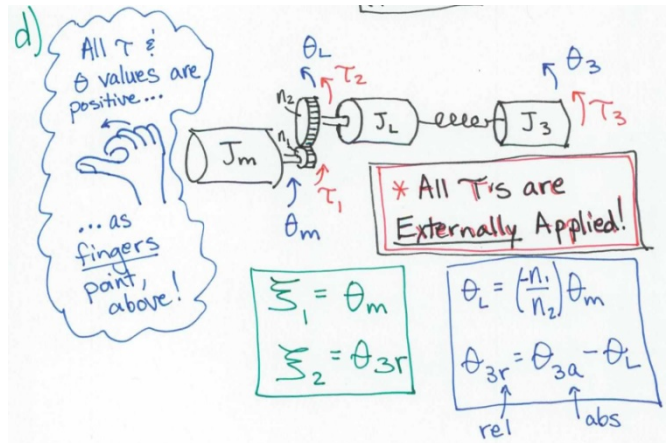 d)
All τ &
θ values are
positive...
... as
fingers
point,
above!
θ_L
τ_2
n_2
n_1
J_m
J_L
J_3
θ_3
τ_3
τ_1
θ_m
* All τ's are
Externally Applied!
ξ_1 = θ_m
ξ_2 = θ_3r
θ_L = (-n_1/n_2) θ_m
θ_3r = θ_3a - θ_L
rel
abs